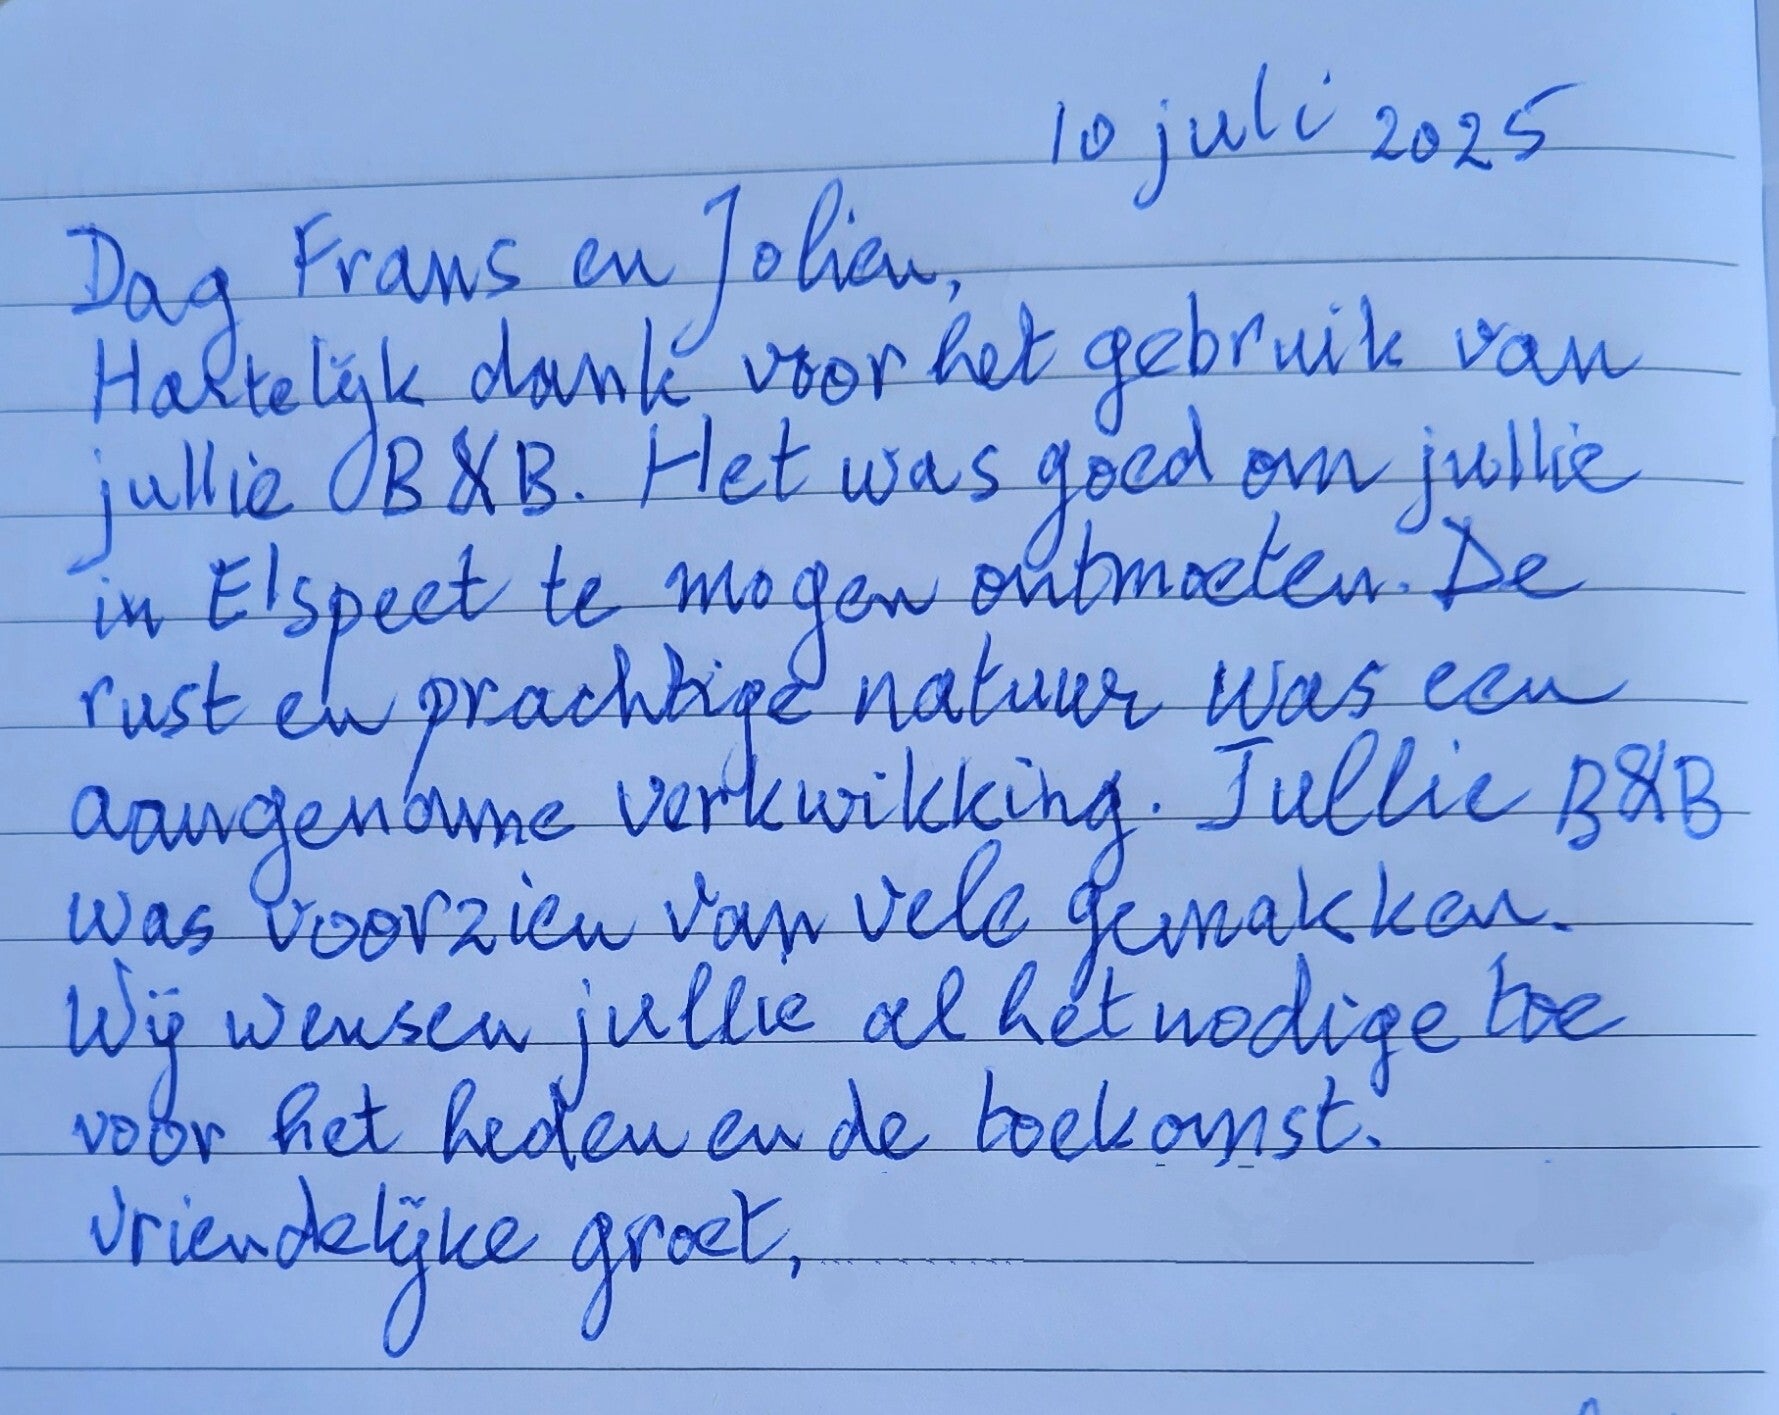 10 juli 2025
Dag Frans en Jolien,
Hartelijk dank voor het gebruik van
jullie B&B. Het was goed om jullie
in Elspeet te mogen ontmoeten. De
rust en prachtige natuur was een
aangename verkwikking. Jullie B&B
was voorzien van vele gemakken.
Wij wensen jullie al het nodige toe
voor het heden en de toekomst.
Vriendelijke groet,